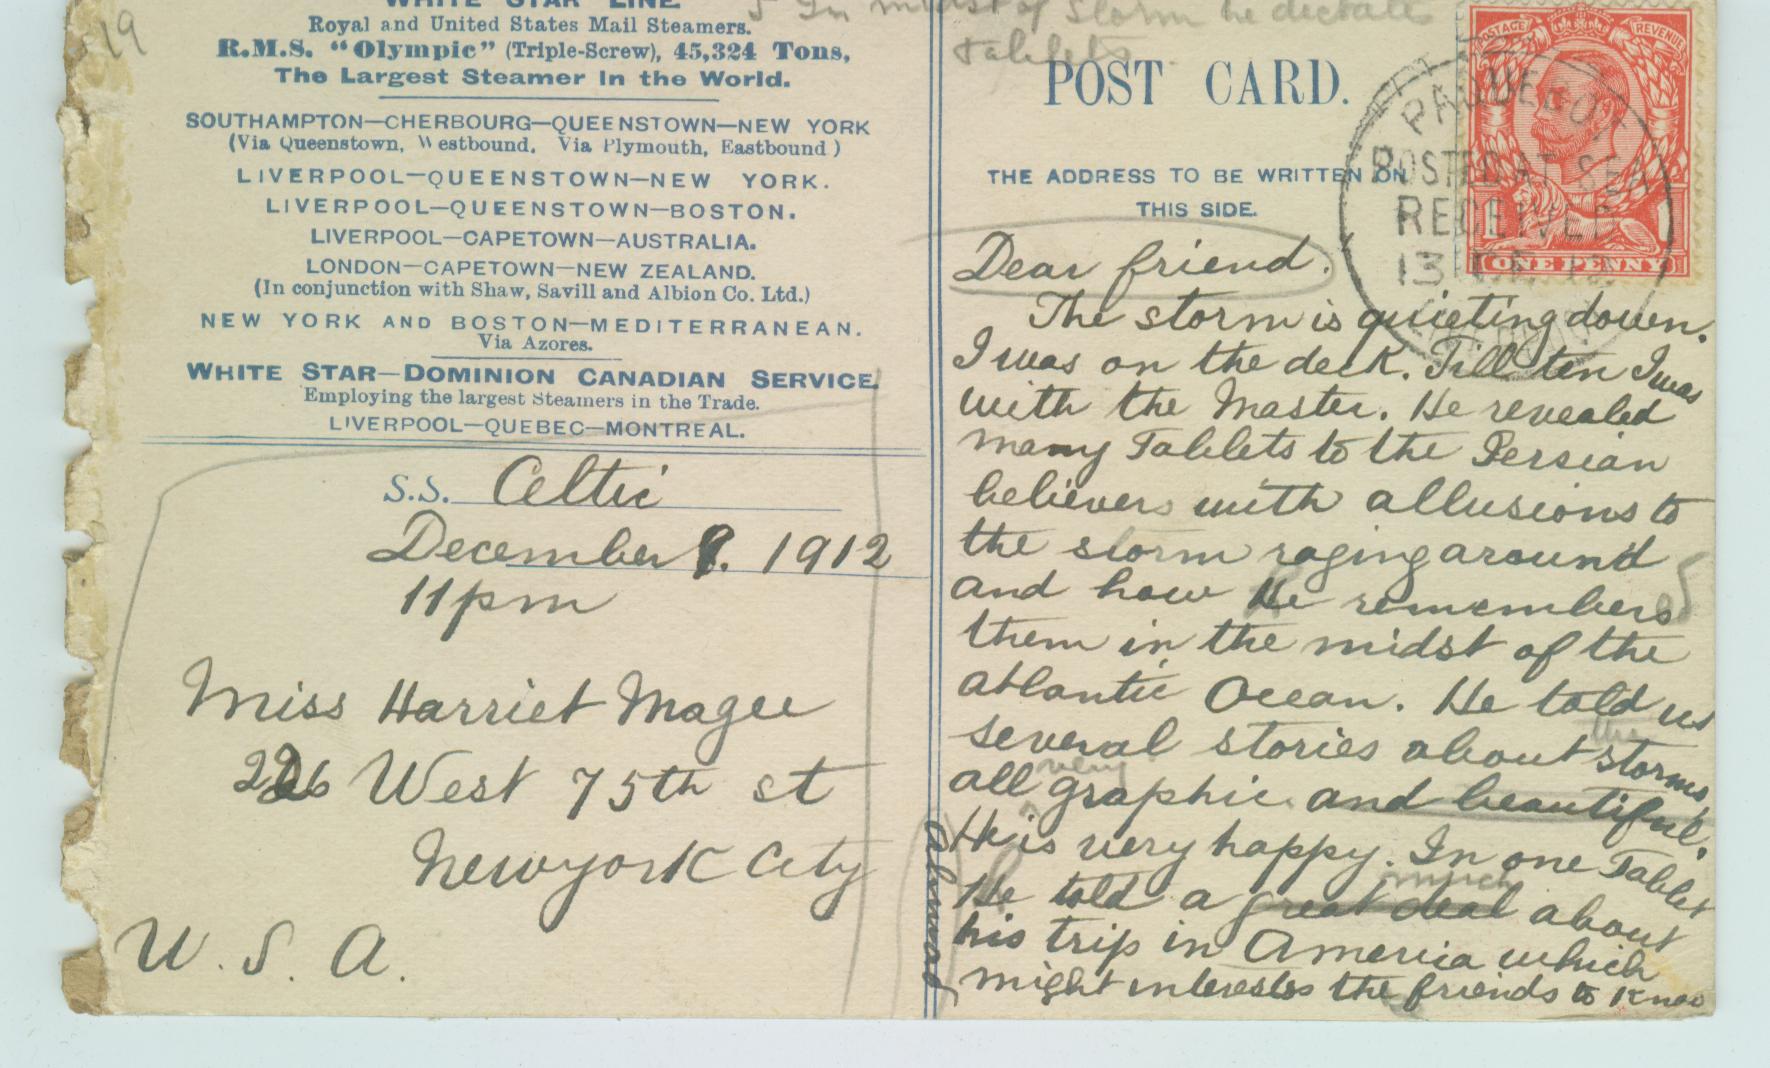 19
WHITE STAR LINE.
Royal and United States Mail Steamers.
R.M.S. "Olympic" (Triple-Screw), 45,324 Tons,
The Largest Steamer in the World.
SOUTHAMPTON—CHERBOURG—QUEENSTOWN—NEW YORK
(Via Queenstown, Westbound. Via Plymouth, Eastbound)
LIVERPOOL—QUEENSTOWN—NEW YORK.
LIVERPOOL—QUEENSTOWN—BOSTON.
LIVERPOOL—CAPETOWN—AUSTRALIA.
LONDON—CAPETOWN—NEW ZEALAND.
(In conjunction with Shaw, Savill and Albion Co. Ltd.)
NEW YORK AND BOSTON—MEDITERRANEAN.
Via Azores.
WHITE STAR—DOMINION CANADIAN SERVICE.
Employing the largest Steamers in the Trade.
LIVERPOOL—QUEBEC—MONTREAL.
S.S. Celtic
December 9. 1912
11 pm
Miss Harriet Magee
226 West 75th st
Newyork City
U. S. A.
5 In midst of storm he dictates
Tablets.
POST CARD.
THE ADDRESS TO BE WRITTEN ON
THIS SIDE.
POSTAGE REVENUE
1 1
ONE PENNY
PAQUEBOT
POSTED AT SEA
RECEIVED
13 DE 12
Dear friend.
The storm is quieting down.
I was on the deck. Till ten I was
with the Master. He revealed
many Tablets to the Persian
believers with allusions to
the storm raging around
and how He remembers
them in the midst of the
atlantic Ocean. He told us
several stories about the storms,
all very graphic and beautiful.
He is very happy. In one Tablet
He told a great deal much about
his trip in America which
might interests the friends to know
Ahmad